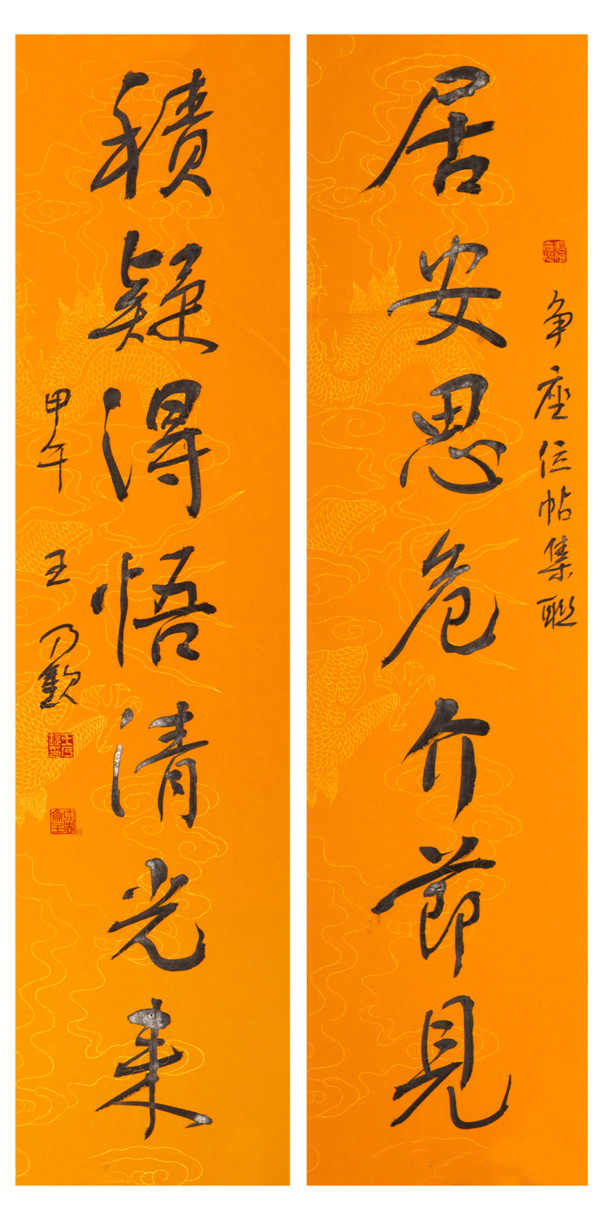 争座位帖集联
居安思危介節見
積疑得悟清光来
甲午 王乃歡